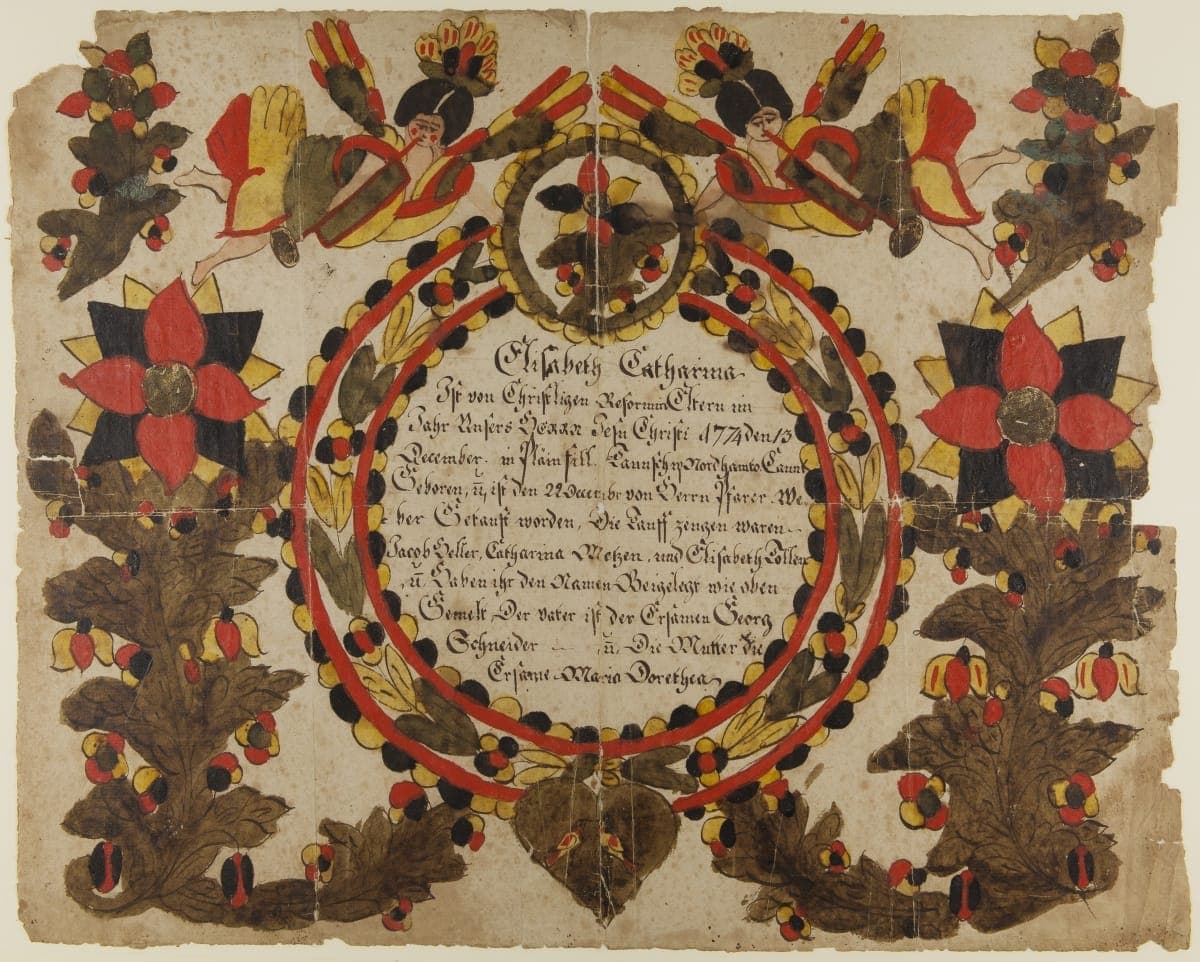 Elisabeth Catharina
Ist von Christligen Reformia Eltern im
Jahr Unsers HERRN Jesu Christi 1774 den 13
December in Plainfill Taunschip Nordhamto Caunt
Geboren, ũ, ist den 22 December von Herrn Pfarer We
ber Getauft worden, Die Tauff zeugen waren
Jacob Heller, Catharina Metzen, und Elisabeth
ũ Haben ihr den Namen Beigelegt wie oben
Gemelt Der vater ist der Ersamen Georg
Schneider ũ. Die Mutter die
Ersame Maria Dorethea